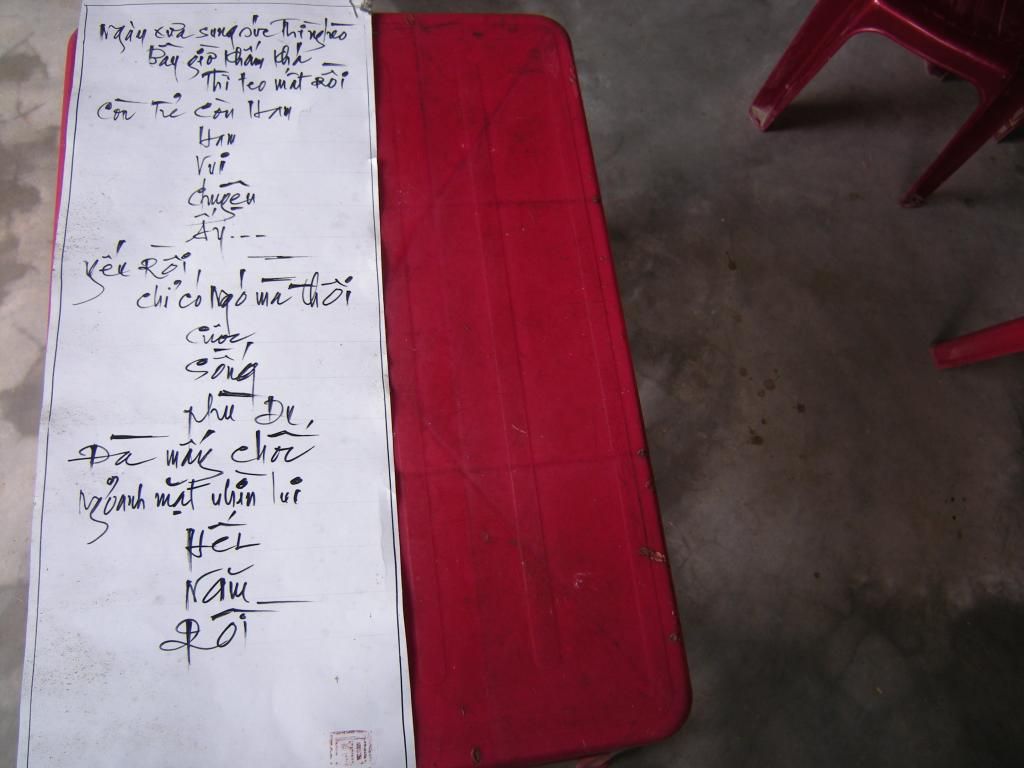 Ngày xưa sung sức thì nghèo
Bây giờ khấm khá
Thì teo mất Rồi
Còn Trẻ Còn Ham
Ham
Vui
Chuyện
Ấy...
Yếu Rồi
chỉ có Ngó mà thôi
Cuộc
Sống
Như
Đã mấy chốc
Ngoảnh mặt nhìn lui
Hết
Năm
Rồi